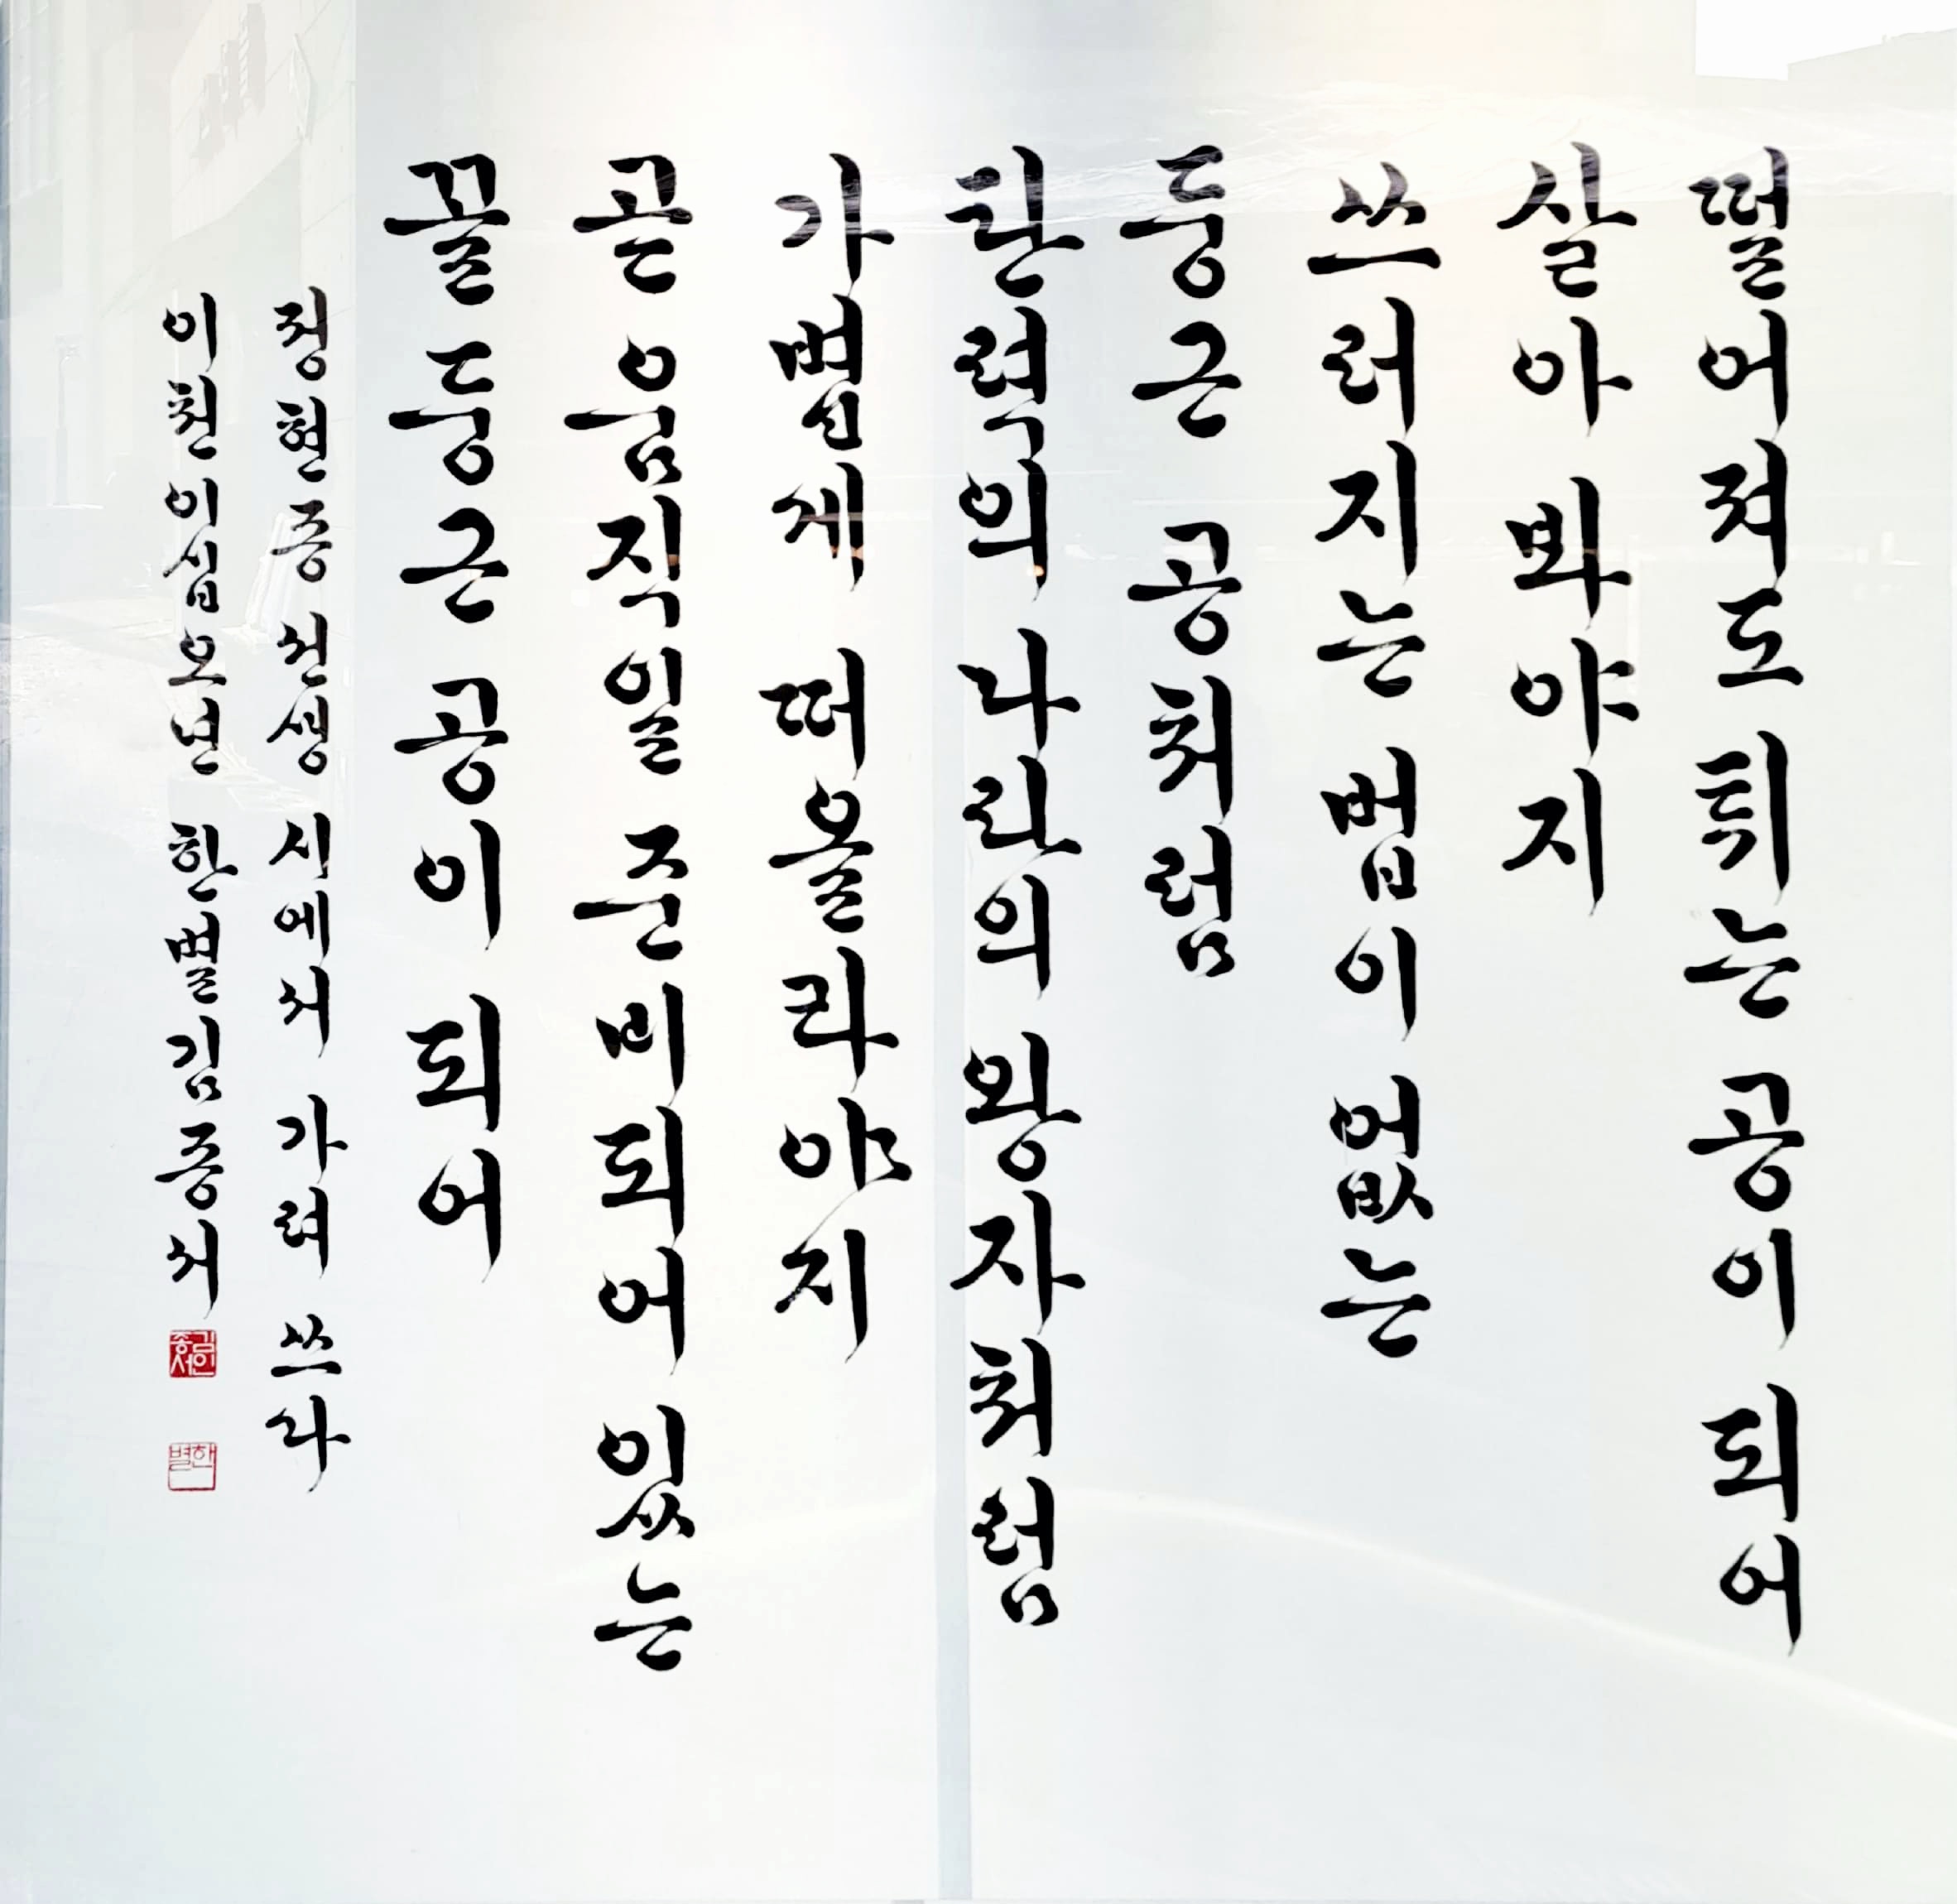 떨어져도 튀는 공이 되어
살아 봐야지
쓰러지는 법이 없는
둥근 공처럼
탄력의 나라의 왕자처럼
가볍게 떠올라야지
곧 움직일 준비되어 있는
꼴 둥근 공이 되어
정현종 선생 시에서 가려 쓰다
이천이십오년 한별 김종서
김종서
한별